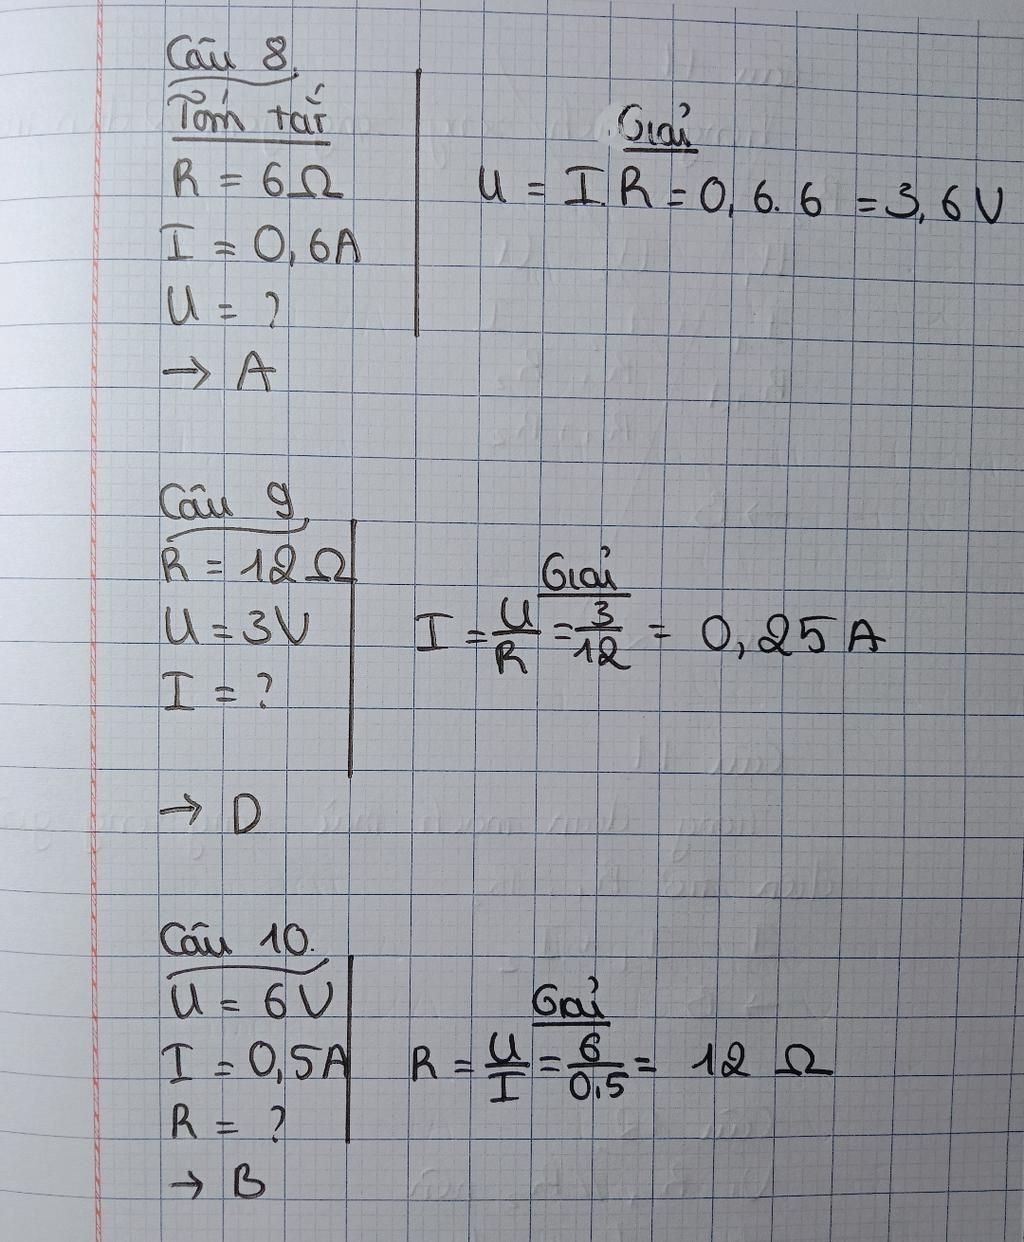 Câu 8.
Tóm tắt
R = 6Ω
I = 0,6A
U = ?
→ A
Giải
U = I.R = 0,6.6 = 3,6V
Câu 9
R = 12Ω
U = 3V
I = ?
→ D
Giải
I = U/R = 3/12 = 0,25A
Câu 10.
U = 6V
I = 0,5A
R = ?
→ B
Gải
R = U/I = 6/0,5 = 12 Ω